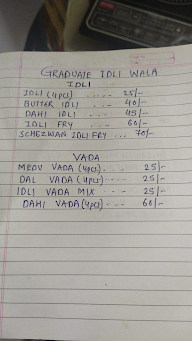 GRADUATE IDLI WALA
IDLI
IDLI (4 pcs) ----- 25/-
BUTTER IDLI --- 40/-
DAHI IDLI --- 45/-
IDLI FRY --- 60/-
SCHEZWAN IDLI FRY ... 70/-
VADA
MEDU VADA (4 pcs) --- 25/-
DAL VADA (4 pcs) ---- 25/-
IDLI VADA MIX --- 25/-
DAHI VADA (4 pcs) --- 60/-